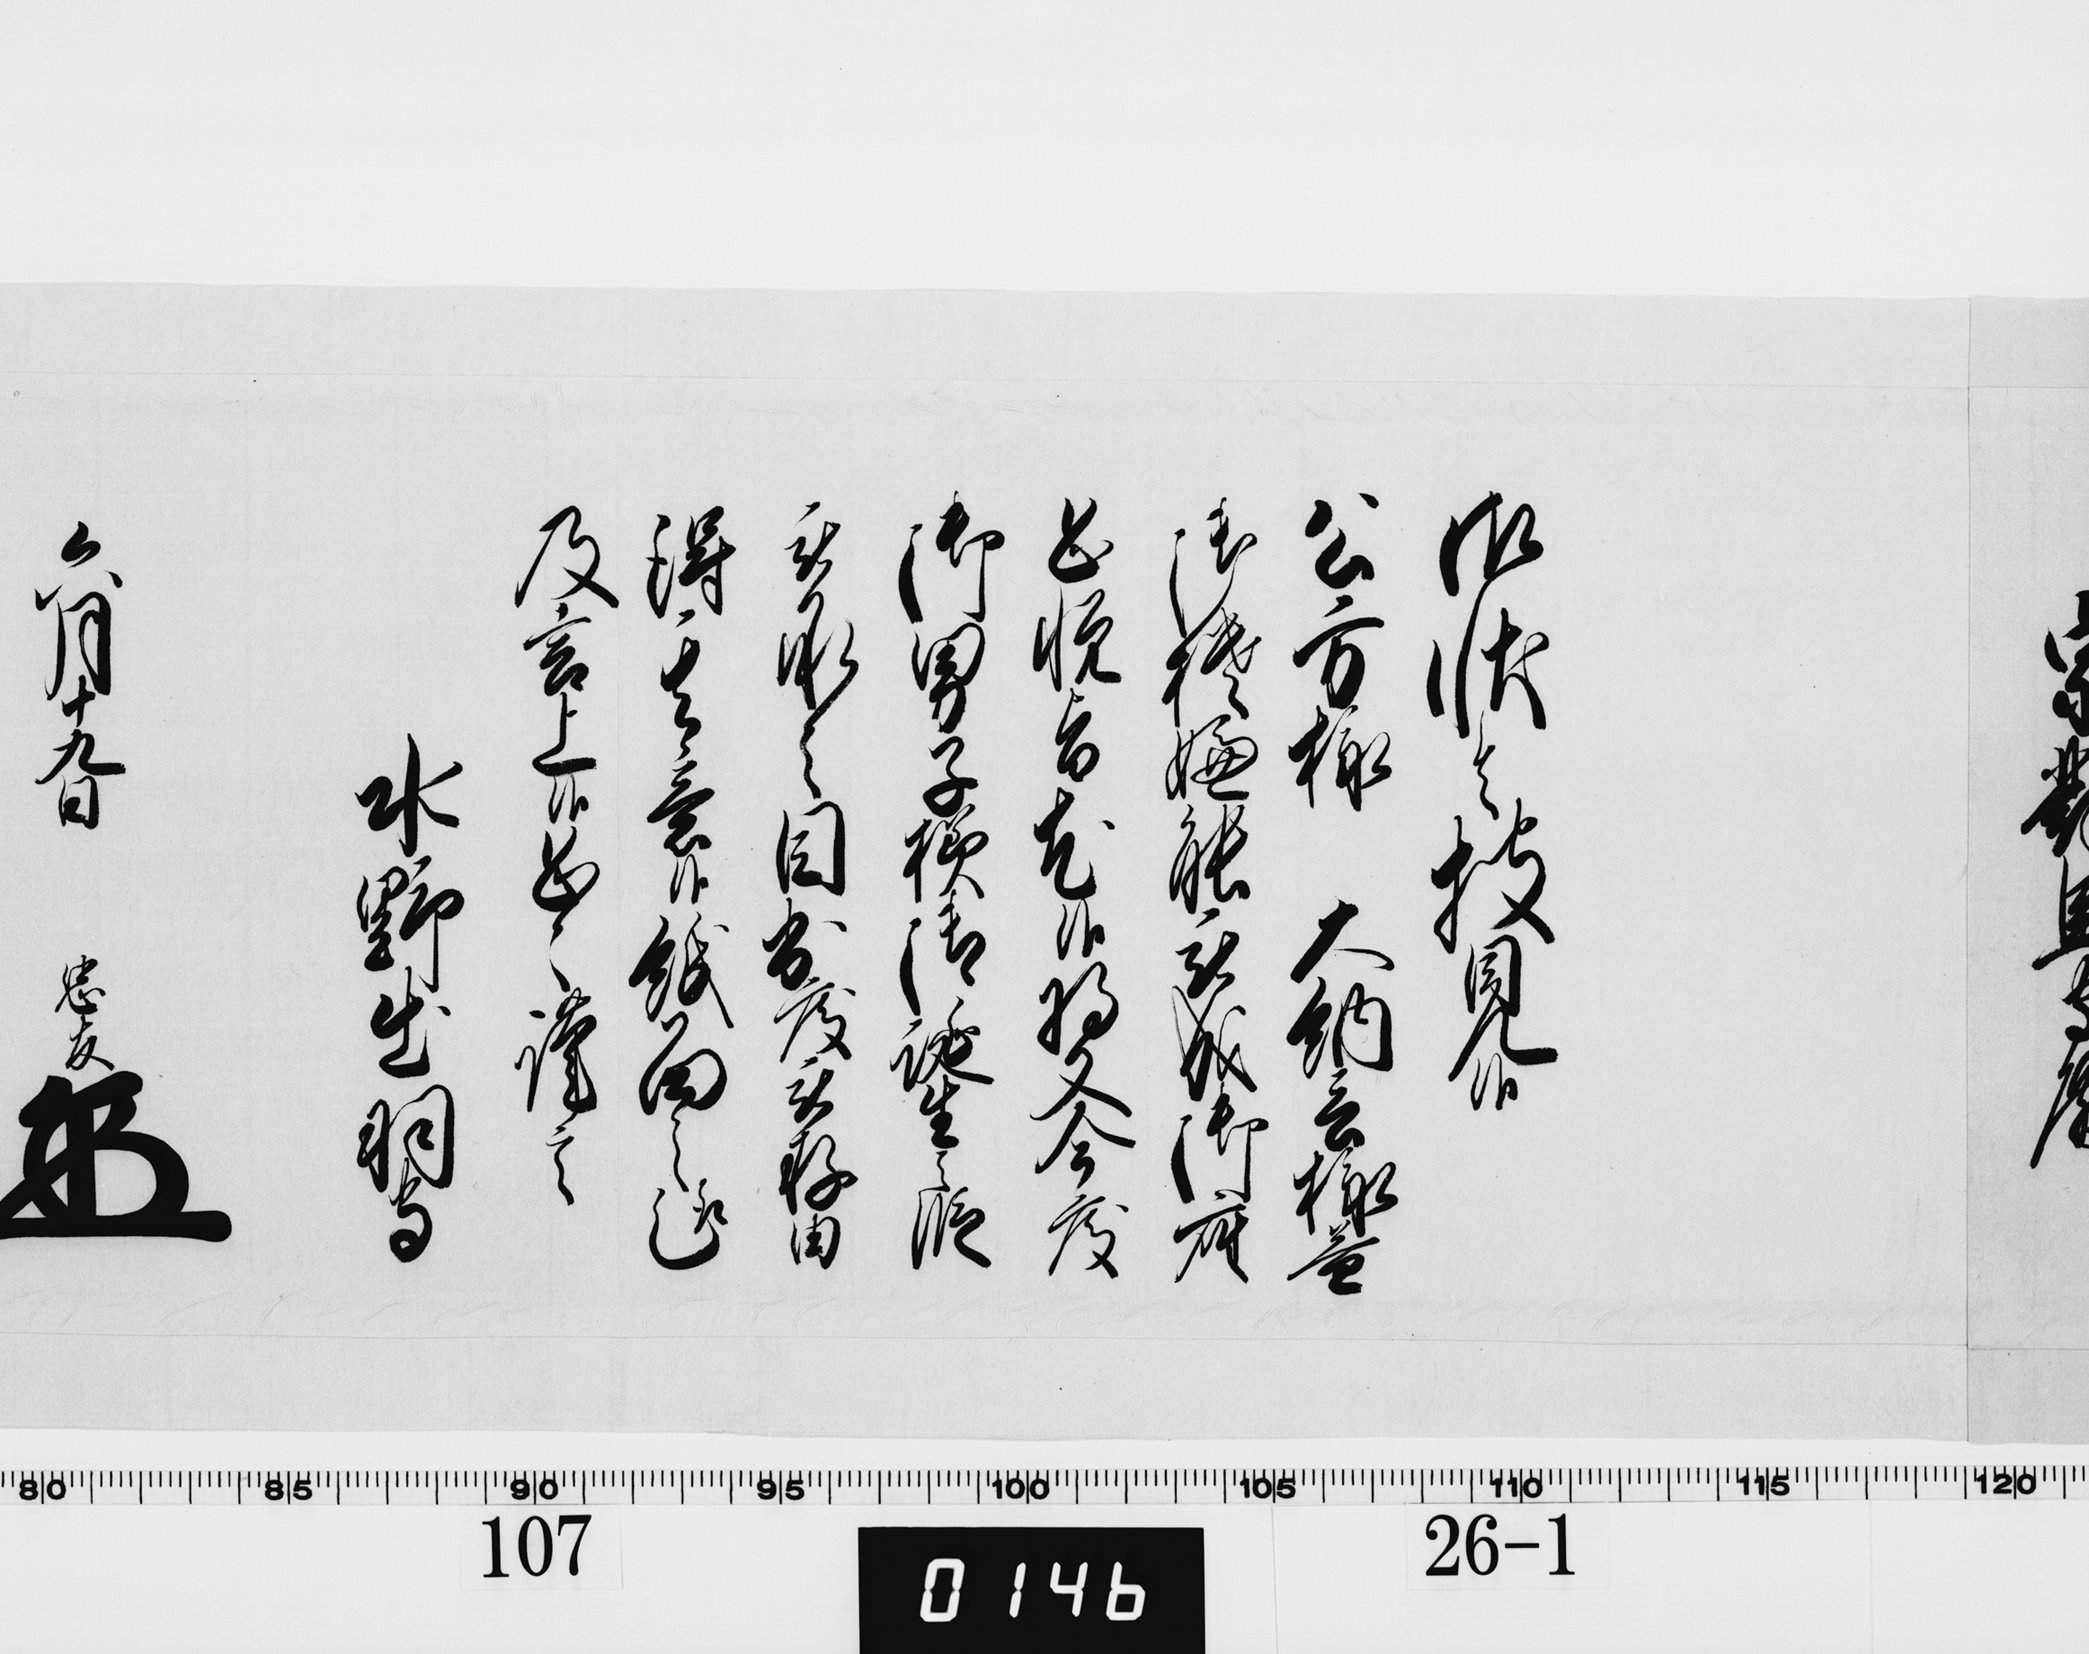 宗對馬守殿
御状令披見候
公方様 大納言様益
御機嫌能被成御座
恐悦旨尤候将又今度
御男子様御誕生之段
被承之目出度被存由
得其意候紙面之趣
及言上候恐々謹言
水野出羽守
六月十九日 忠友
80 85 90 95 100 105 110 115 120
107
0146
26-1